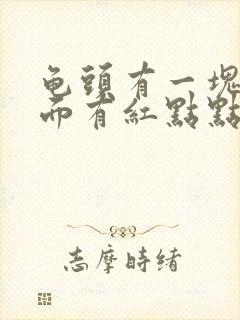 龟頭有一塊
而有紅點點
志摩時緒